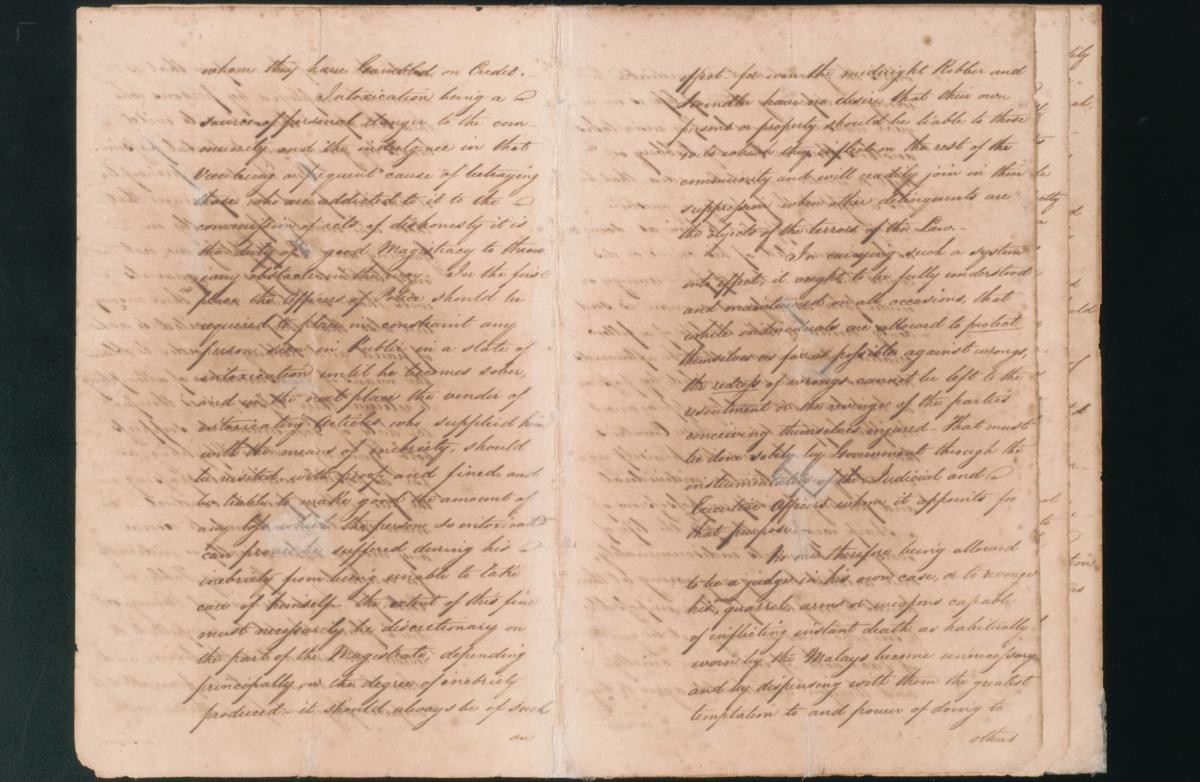 whom they have Gambled on Credit.
Intoxication being a
source of personal danger to the com-
munity and the indulgence in that
Vice being a frequent cause of betraying
those who are addicted to it to the
commission of acts of dishonesty it is
the duty of a good Magistracy to throw
every obstacle in the way. In the first
place the Officers of Police should be
required to place in constraint any
person seen in Public in a state of
intoxication until he becomes sober,
and in the next place the vender of
intoxicating Articles who supplied him
with the means of inebriety, should
be visited with and fined, and
be liable to make good the amount of
any loss which the person so intoxicated
can prove he suffered during his
inebriety from being unable to take
care of himself the extent of this fine
must necessarily be discretionary on
the part of the Magistrate, depending
principally on the degree of inebriety
produced - it should always be of such
an
effect - for even the midnight Robber and
Swindler have no desire that their own
persons or property should be liable to those
which they inflict on the rest of the
community and will readily join in their
suppression when other delinquents are
the objects of the terrors of the Law.
In carrying such a system
into effect, it ought to be fully understood
and maintained on all occasions, that
while individuals are allowed to protect
themselves as far as possible against wrongs,
the redress of wrongs cannot be left to the
resentment or the revenge of the parties
conceiving themselves injured - That must
be done solely by Government through the
instrumentality of the Judicial and
Executive Officers whom it appoints for
that purpose.
No one therefore being allowed
to be a judge in his own case, or to revenge
his own quarrel, arms or weapons capable
of inflicting instant death as habitually
worn by the Malays become unnecessary
and by dispensing with them the greatest
temptation to and power of doing to
others